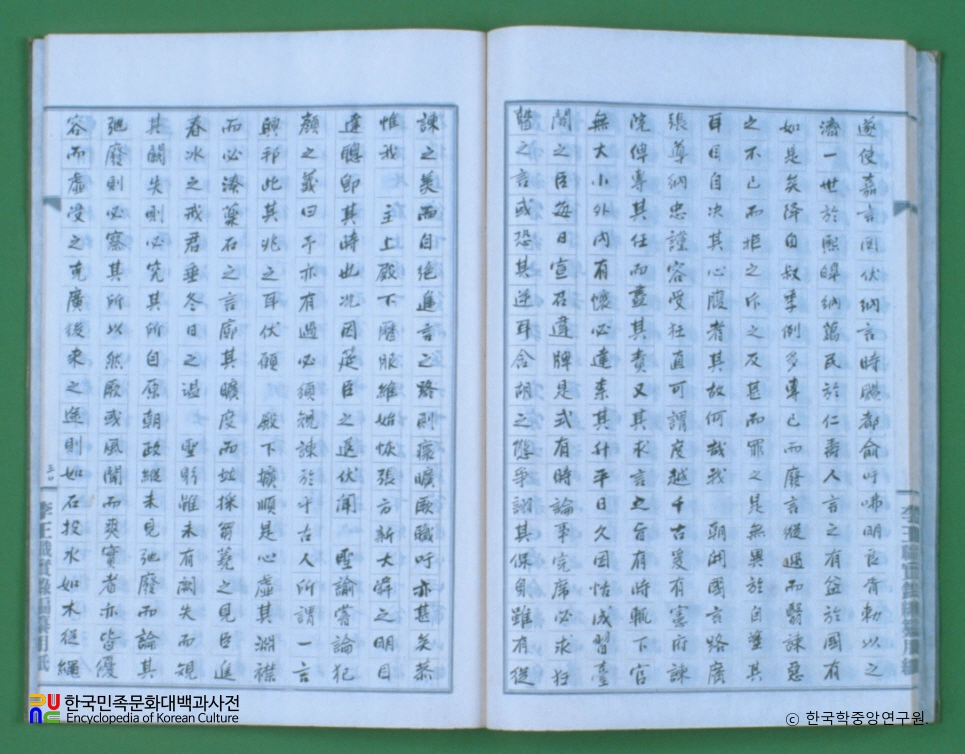 遂使嘉言罔伏納言時颺都俞吁咈明良胥勅以之
濟一世於熙皥納萬民於仁壽人言之有益於國有
如是矣降自叔季例多專己而廢言縱過而翳諫惡
之不已而非之斥之及甚而罪之是無異於自塗其
耳目自決其心腹者其故何哉我 朝開國言路廣
張導納忠謹容受狂直可謂度越千古爰有憲府諫
院俾專其任而盡其責又其求言之旨有時輒下官
無大小外內有懷必達柰其升平日久因恬成習臺
閣之臣每日宣召違牌是式有時論事完席必求狂
瞽之言或恐其逆耳含胡之態爭詡其保身雖有從
諫之美而自絕進言之路則瘝曠厥職吁亦甚矣恭
惟我 主上殿下曆服維始恢張方新大舜之明目
達聰卽其時也況因筵臣之退伏聞 聖諭嘗論犯
顏之義曰予亦有過必須規諫於乎古人所謂一言
興邦此其兆之耳伏願 殿下擴順是心虛其淵襟
而必湊藥石之言廓其曠度而並採蒭蕘之見臣進
春冰之戒君垂冬日之溫 聖躬惟未有闕失而規
其闕失則必究其所自原朝政縱未見弛廢而論其
弛廢則必察其所以然厥或風聞而爽實者亦皆優
容而虛受之克廣後來之途則如石投水如木從繩
李王職實錄編纂用紙
한국민족문화대백과사전
Encyclopedia of Korean Culture
© 한국학중앙연구원.